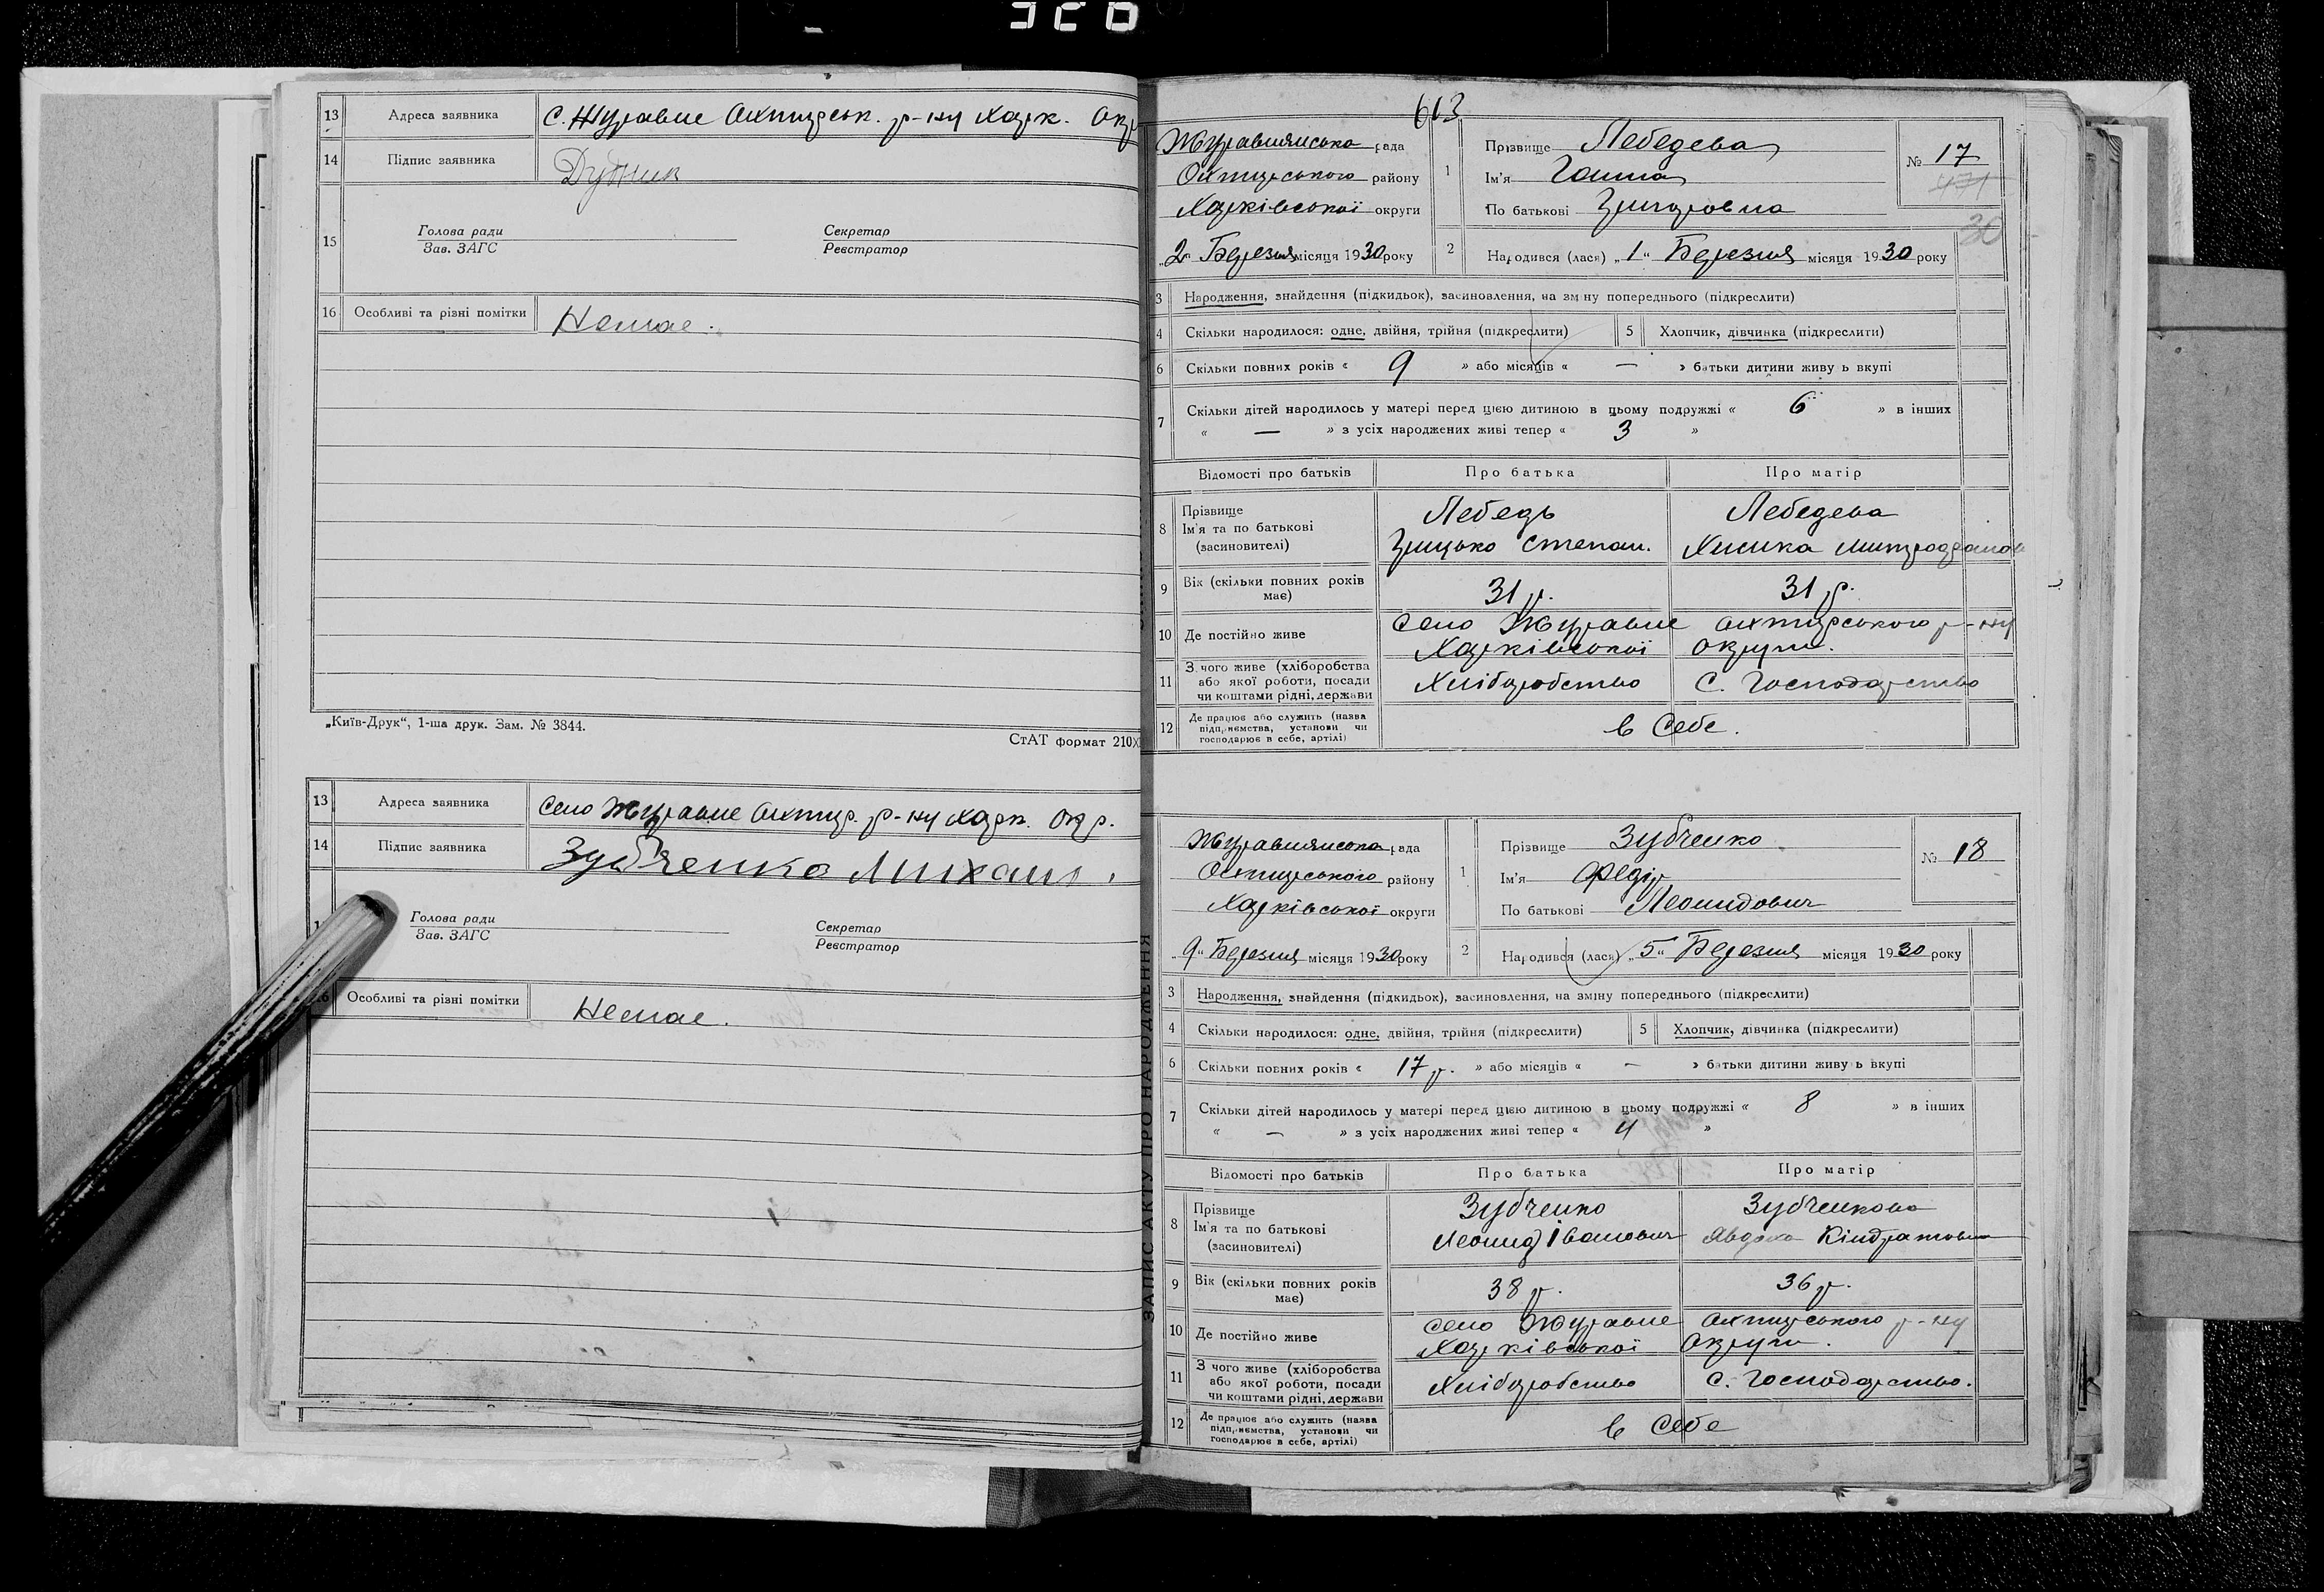 326
13 Адреса заявника С. Журавне Охтирськ. р-ну Харк. Окр
14 Підпис заявника Дудник
15 Голова ради Секретар
Зав. ЗАГС Реєстратор
16 Особливі та різні помітки Немає.
„Київ-Друк“, 1-ша друк. Зам. № 3844.
СтАТ формат 210X
13 Адреса заявника Село Журавне Охтир. р-ну Харк. Окр.
14 Підпис заявника Зубченко Михаил
Голова ради Секретар
Зав. ЗАГС Реєстратор
16 Особливі та різні помітки Немає.
ЗАПИС АКТУ ПРО НАРОДЖЕННЯ
613
Журавнянська рада
Охтирського району
Харківської округи
„2“ Березня місяця 1930 року
1 Прізвище Лебедева
Ім'я Ганна
По батькові Григоровна
№ 17
471
30
2 Народився (лася) „1“ Березня місяця 1930 року
3 Народження, знайдення (підкидьок), засиновлення, на зміну попереднього (підкреслити)
4 Скільки народилося: одне, двійня, трійня (підкреслити) 5 Хлопчик, дівчинка (підкреслити)
6 Скільки повних років « 9 » або місяців « — » батьки дитини живуть вкупі
7 Скільки дітей народилось у матері перед цією дитиною в цьому подружжі « 6 » в інших
« — » з усіх народжених живі тепер « 3 »
Відомості про батьків Про батька Про матір
8 Прізвище Лебедь Лебедева
Ім'я та по батькові
(засиновителі) Грицько Степан. Химка Митрофанов
9 Вік (скільки повних років має) 31 р. 31 р.
10 Де постійно живе Село Журавне Охтирського р-ну
Харківської Округи.
11 З чого живе (хліборобства
або якої роботи, посади Хліборобство С. Господарство
чи коштами рідні, держави
12 Де працює або служить (назва
підприємства, установи чи в Себе.
господарює в себе, артілі)
Журавнянська рада
Охтирського району
Харківської округи
„9“ Березня місяця 1930 року
1 Прізвище Зубченко
Ім'я Федір
По батькові Леонидович
№ 18
2 Народився (лася) „5“ Березня місяця 1930 року
3 Народження, знайдення (підкидьок), засиновлення, на зміну попереднього (підкреслити)
4 Скільки народилося: одне, двійня, трійня (підкреслити) 5 Хлопчик, дівчинка (підкреслити)
6 Скільки повних років « 17 р. » або місяців « — » батьки дитини живуть вкупі
7 Скільки дітей народилось у матері перед цією дитиною в цьому подружжі « 8 » в інших
« — » з усіх народжених живі тепер « 4 »
Відомості про батьків Про батька Про матір
8 Прізвище Зубченко Зубченкова
Ім'я та по батькові Леонид Іванович Явдоха Кіндратовна
(засиновителі)
9 Вік (скільки повних років має) 38 р. 36 р.
10 Де постійно живе Село Журавне Охтирського р-ну
Харківської Округи.
11 З чого живе (хліборобства
або якої роботи, посади Хліборобство С. Господарство.
чи коштами рідні, держави
12 Де працює або служить (назва
підприємства, установи чи в Себе
господарює в себе, артілі)